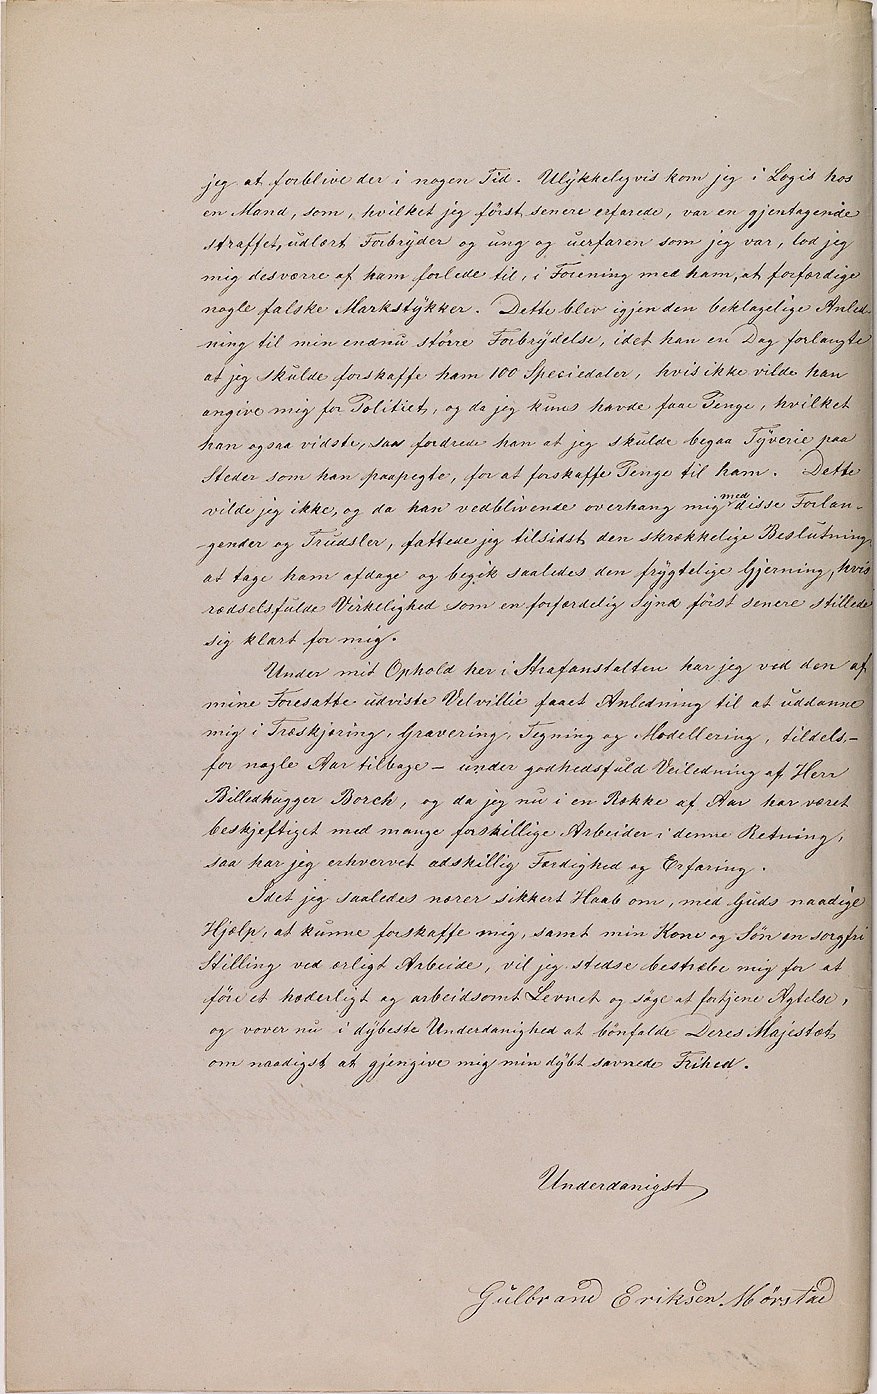 jeg at forblive der i nogen Tid. Ulÿkkeligvis kom jeg i Logis hos
en Mand, som, hvilket jeg først senere erfarede, var en gjentagende
straffet, udlært Forbrÿder og ung og uerfaren som jeg var, lod jeg
mig desværre af ham forlede til, i Forening med ham, at forfærdige
nogle falske Markstÿkker. Dette blev igjen den beklagelige Anled-
ning til min endnu større Forbrÿdelse, idet han en Dag forlangte
at jeg skulde forskaffe ham 100 Speciedaler, hvis ikke vilde han
angive mig for Politiet, og da jeg kuns havde faae Penge, hvilket
han ogsaa vidste, saa fordrede han at jeg skulde begaa Tÿverie paa
Steder som han paapegte, for at forskaffe Penge til ham. Dette
vilde jeg ikke, og da han vedblivende overhang mig med disse Forlan-
gender og Trudsler, fattede jeg tilsidst den skrækkelige Beslutning
at tage ham afdage og begik saaledes den frÿgtelige Gjerning, hvis
rædselsfulde Virkelighed som en forfærdelig Synd først senere stillede
sig klart for mig.
Under mit Ophold her i Strafanstalten har jeg ved den af
mine Foresatte udviste Velvillie faaet Anledning til at uddanne
mig i Træskjæring, Gravering, Tegning og Modellering, tildels -
for nogle Aar tilbage - under godhedsfuld Veiledning af Herr
Billedhugger Borch, og da jeg nu i en Række af Aar har været
beskjeftiget med mange forskillige Arbeider i denne Retning,
saa har jeg erhvervet adskillig Færdighed og Erfaring.
Idet jeg saaledes nærer sikkert Haab om, med Guds naadige
Hjælp, at kunne forskaffe mig, samt min Kone og Søn en sorgfri
Stilling ved ærligt Arbeide, vil jeg stedse bestræbe mig for at
føre et hæderligt og arbeidsomt Levnet og søge at fortjene Agtelse,
og vover nu i dÿbeste Underdanighed at bønfalde Deres Majestæt
om naadigst at gjengive mig min dÿbt savnede Frihed.
Underdanigst
Gulbrand Eriksen Mørstad